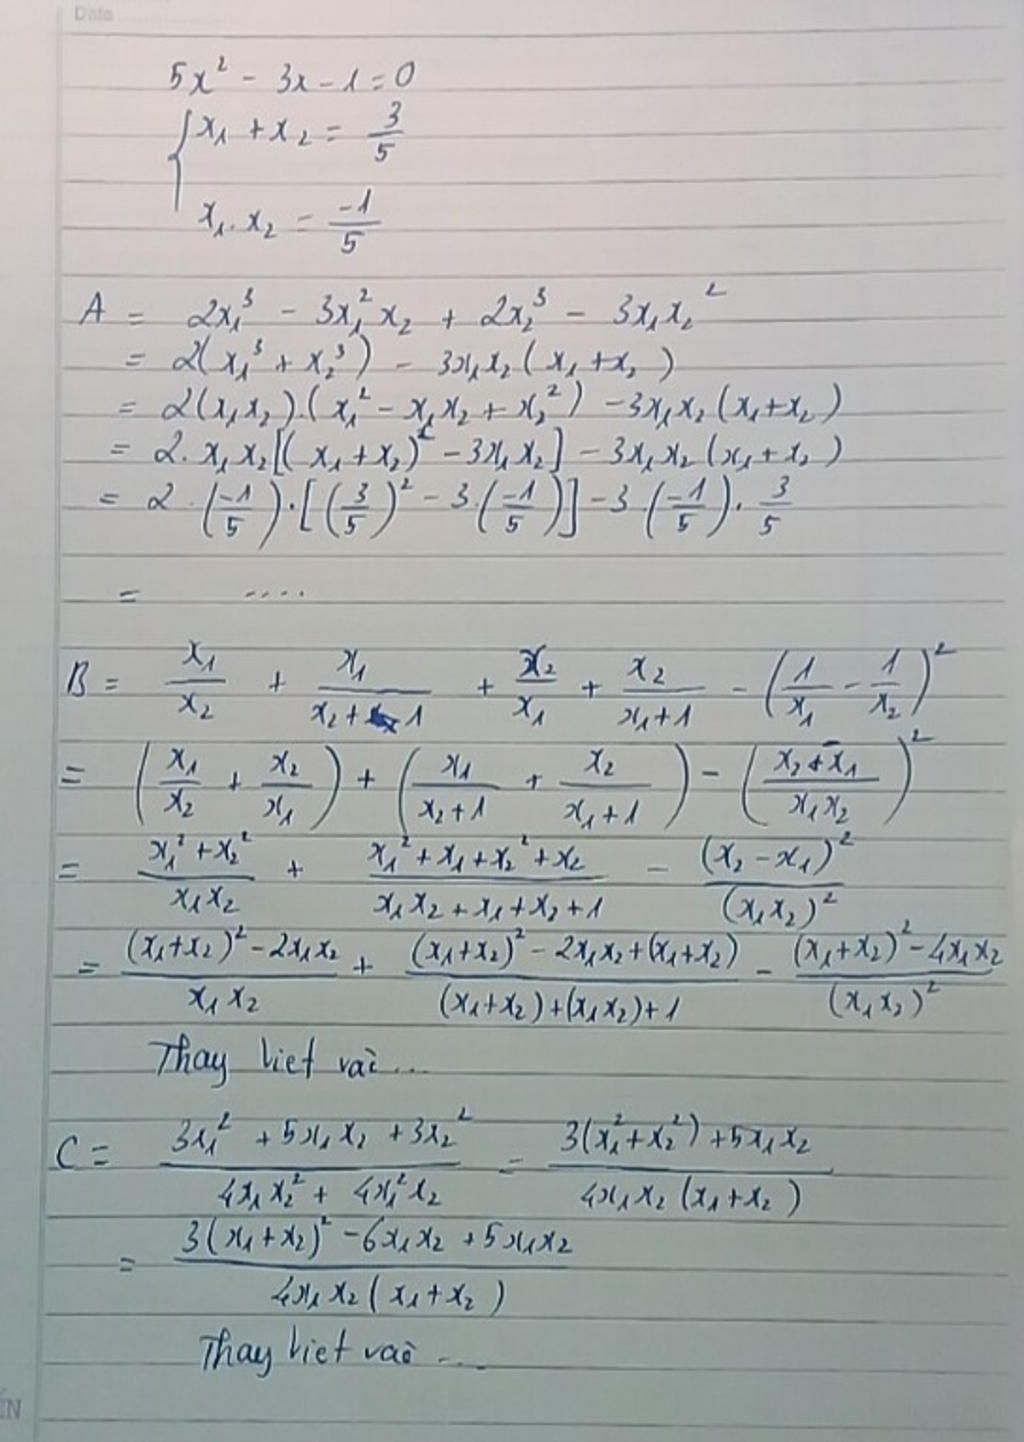 Date
5x² - 3x - 1 = 0
{ x₁ + x₂ = 3/5
x₁ . x₂ = -1/5
A = 2x₁³ - 3x₁²x₂ + 2x₂³ - 3x₁x₂²
= 2(x₁³ + x₂³) - 3x₁x₂(x₁ + x₂)
= 2(x₁x₂).(x₁² - x₁x₂ + x₂²) - 3x₁x₂(x₁+x₂)
= 2. x₁x₂[(x₁+x₂)² - 3x₁x₂] - 3x₁x₂(x₁+x₂)
= 2 . (-1/5).[(3/5)² - 3.(-1/5)] - 3(-1/5). 3/5
= ....
B = x₁/x₂ + x₁/(x₂+1) + x₂/x₁ + x₂/(x₁+1) - (1/x₁ - 1/x₂)²
= (x₁/x₂ + x₂/x₁) + (x₁/(x₂+1) + x₂/(x₁+1)) - ((x₂-x₁)/(x₁x₂))²
= (x₁²+x₂²)/(x₁x₂) + (x₁²+x₁+x₂²+x₂)/(x₁x₂+x₁+x₂+1) - (x₂-x₁)²/(x₁x₂)²
= ((x₁+x₂)²-2x₁x₂)/(x₁x₂) + ((x₁+x₂)²-2x₁x₂+(x₁+x₂))/((x₁+x₂)+(x₁x₂)+1) - ((x₁+x₂)²-4x₁x₂)/(x₁x₂)²
Thay Viet vaò...
C = (3x₁² + 5x₁x₂ + 3x₂²)/(4x₁x₂² + 4x₁²x₂) = (3(x₁²+x₂²)+5x₁x₂)/(4x₁x₂(x₁+x₂))
= (3(x₁+x₂)² - 6x₁x₂ + 5x₁x₂)/(4x₁x₂(x₁+x₂))
Thay Viet vaò ...